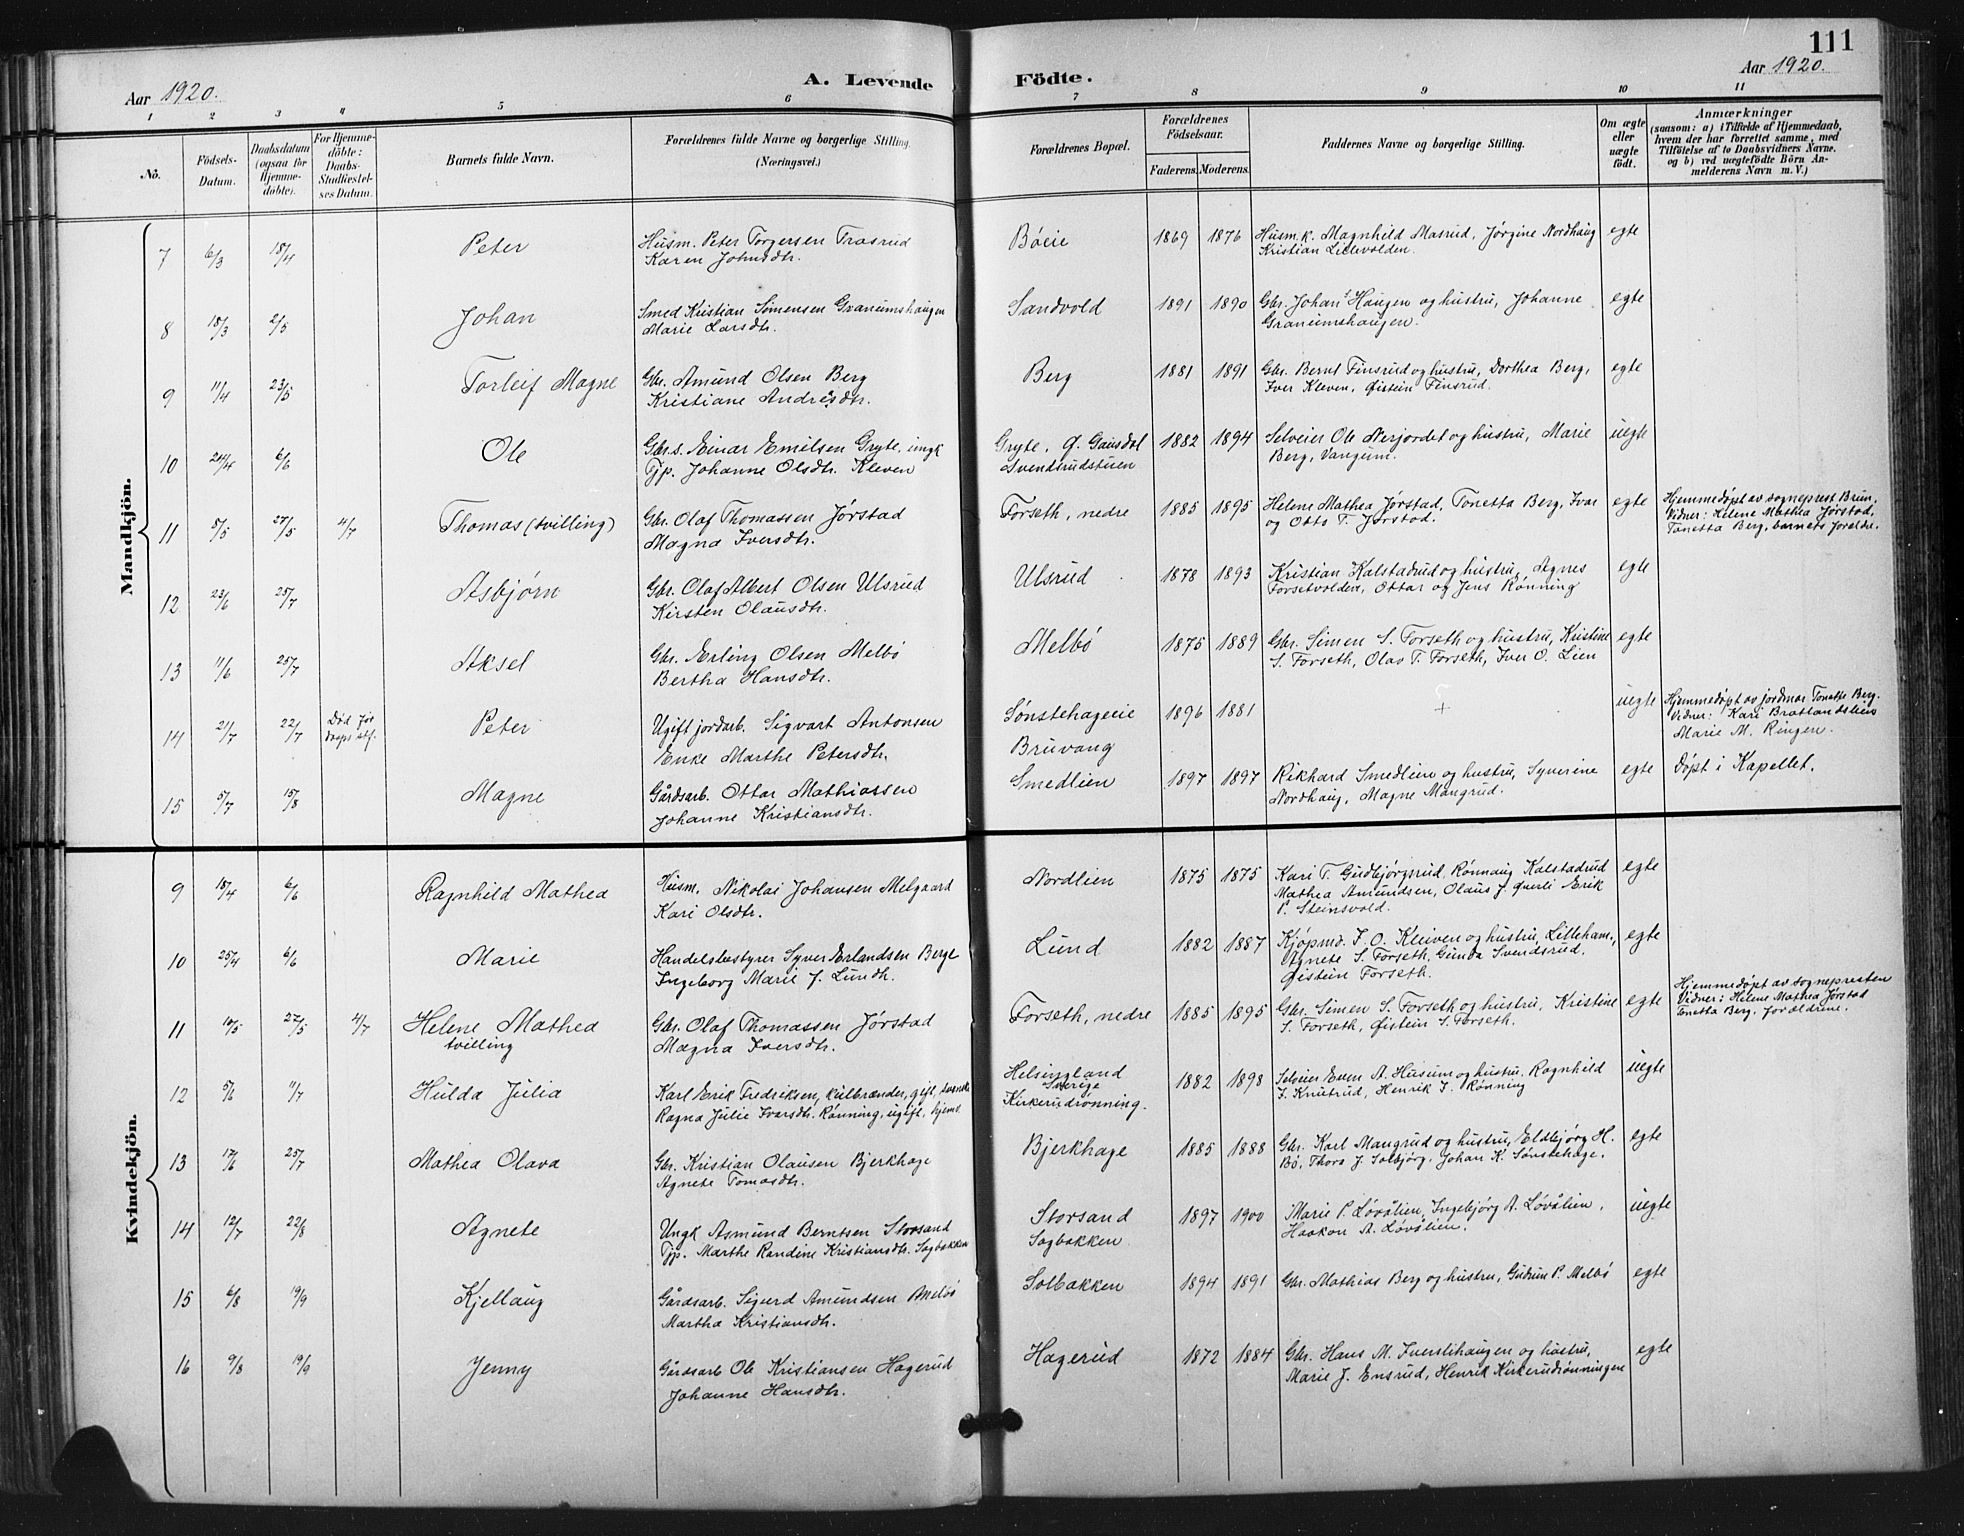 111
Aar 1920.
A. Levende Födte.
Aar 1920.
1 2 3 4 5 6 7 8 9 10 11
No.
Födsels-Datum.
Daabsdatum (ogsaa for Hjemme-döbte).
For Hjemme-döbte: Daabs-Stadfæstel-ses Datum.
Barnets fulde Navn.
Forældrenes fulde Navne og borgerlige Stilling.
(Næringsvei.)
Forældrenes Bopæl.
Forældrenes Födselsaar.
Faderens. Moderens.
Faddernes Navne og borgerlige Stilling.
Om ægte eller uægte födt.
Anmærkninger
(saasom: a) i Tilfælde af Hjemmedaab,
hvem der har forrettet samme, med
Tilföielse af to Daabsvidners Navne,
og b) ved uægtefödte Börn An-
melderens Navn m. V.)
Mandkjön.
7 6/3 18/4 Peter Husm. Peter Torgersen Trasrud Bøeie 1869 1876 Husm.k. Magnhild Masrud, Jørgine Nordhaug egte
Karen Johnsdtr. Kristian Lillevolden.
8 18/3 2/5 Johan Smed Kristian Simensen Graniumshaugen Sandvold 1891 1890 Gbr. Johan Haugen og hustru, Johanne egte
Marie Larsdtr. Graniumshaugen.
9 11/4 23/5 Torleif Magne Gbr. Amund Olsen Berg Berg 1881 1891 Gbr. Bernt Finsrud og hustru, Dorthea Berg, egte
Kristiane Andrèsdtr. Iver Kleven, Øistein Finsrud.
10 24/4 6/6 Ole Gbr.s. Einar Emilsen Gryte, ungk Gryte, Ø. Gausdal 1882 1894 Selveier Ole Nerjordet og hustru, Marie uegte
Tjp. Johanne Olsdtr. Kleven Svendsrudstuen Berg, Vangum.
11 5/5 27/5 4/7 Thomas (tvilling) Gbr. Olaf Thomassen Jørstad Forseth, nedre 1885 1895 Helene Mathea Jørstad, Tonetta Berg, Ivar egte Hjemmedøpt av sogneprest Brun.
Magna Iversdtr. og Otto T. Jørstad. Vidner: Helene Mathea Jørstad,
Tonetta Berg, barnets foreldre.
12 23/6 25/7 Asbjørn Gbr. Olaf Albert Olsen Ulsrud Ulsrud 1878 1893 Kristian Kalstadrud og hustru, Agnes egte
Kirsten Olausdtr. Forsetvolden, Ottar og Jens Rønning
13 11/6 25/7 Aksel Gbr. Erling Olsen Melbø Melbø 1875 1889 Gbr. Simen S. Forseth og hustru, Kristine egte
Bertha Hansdtr. S. Forseth, Olav T. Forseth, Iver O. Lien
14 2/7 22/7 Død før Daaps stf. Peter Ugift jordarb. Sigvart Antonsen Sønstehageie 1896 1881 + uegte Hjemmedøpt av jordmor Tonette Berg.
Enke Marthe Petersdtr. Bruvang Vidner: Kari Bratlandslien
Marie M. Ringen.
15 5/7 15/8 Magne Gårdsarb. Ottar Mathiassen Smedlien 1897 1897 Rikhard Smedlien og hustru, Syverine egte Døpt i Kapellet.
Johanne Kristiansdtr. Nordhaug, Magne Mangrud.
Kvindekjön.
9 18/4 6/6 Ragnhild Mathea Husm. Nikolai Johansen Melgaard Nordlien 1875 1875 Kari T. Gudbjørgsrud, Rønnaug Kalstadrud egte
Kari Olsdtr. Mathea Amundsen, Olaus J. Øverli Erik
P. Steinsvold.
10 25/4 6/6 Marie Handelsbestyrer Syver Erlandsen Berge Lund 1882 1887 Kjøpmd. I. O. Kleiven og hustru, Lilleham., egte
Ingeborg Marie J. Lundh. Agnete S. Forseth, Gunda Svendsrud,
Øistein Forseth.
11 14/5 27/5 4/7 Helene Mathea Gbr. Olaf Thomassen Jørstad Forseth, nedre 1885 1895 Gbr. Simen S. Forseth og hustru, Kristine egte Hjemmedøpt av sognepresten
tvilling Magna Iversdtr. S. Forseth, Øistein S. Forseth. Vidner: Helene Mathea Jørstad
Tonetta Berg, forældrene.
12 5/6 11/7 Hulda Julia Karl Erik Fredriksen, kulbrænder, gift, svensk Helsingland Sverige 1882 1898 Selveier Even A. Husum og hustru, Ragnhild uegte
Ragna Julie Ivarsdtr. Rønning, ugift, hjemme Kirkerudrønning. I. Knutrud, Henrik I. Rønning
13 17/6 25/7 Mathea Olava Gbr. Kristian Olausen Bjerkhage Bjerkhage 1885 1888 Gbr. Karl Mangrud og hustru, Eldbjørg H. egte
Agnete Tomasdtr. Bø, Thora J. Solbjørg, Johan K. Sønstehage.
14 12/7 22/8 Agnete Ungk Asmund Berntsen Storsand Storsand 1897 1900 Marie P. Løvålien, Ingebjørg A. Løvålien, uegte
Tjp. Marthe Randine Kristiansdtr. Sagbakken Sagbakken Haakon A. Løvålien.
15 6/8 19/9 Kjellaug Gårdsarb. Sigurd Amundsen Melbø Solbakken 1894 1891 Gbr. Mathias Berg og hustru, Gudrun P. Melbø egte
Martha Kristiansdtr.
16 9/8 19/9 Jenny Gårdsarb Ole Kristiansen Hagerud Hagerud 1872 1884 Gbr. Hans M. Iverslihaugen og hustru, egte
Johanne Hansdtr. Marie J. Ensrud, Henrik Kirkerudrønningen